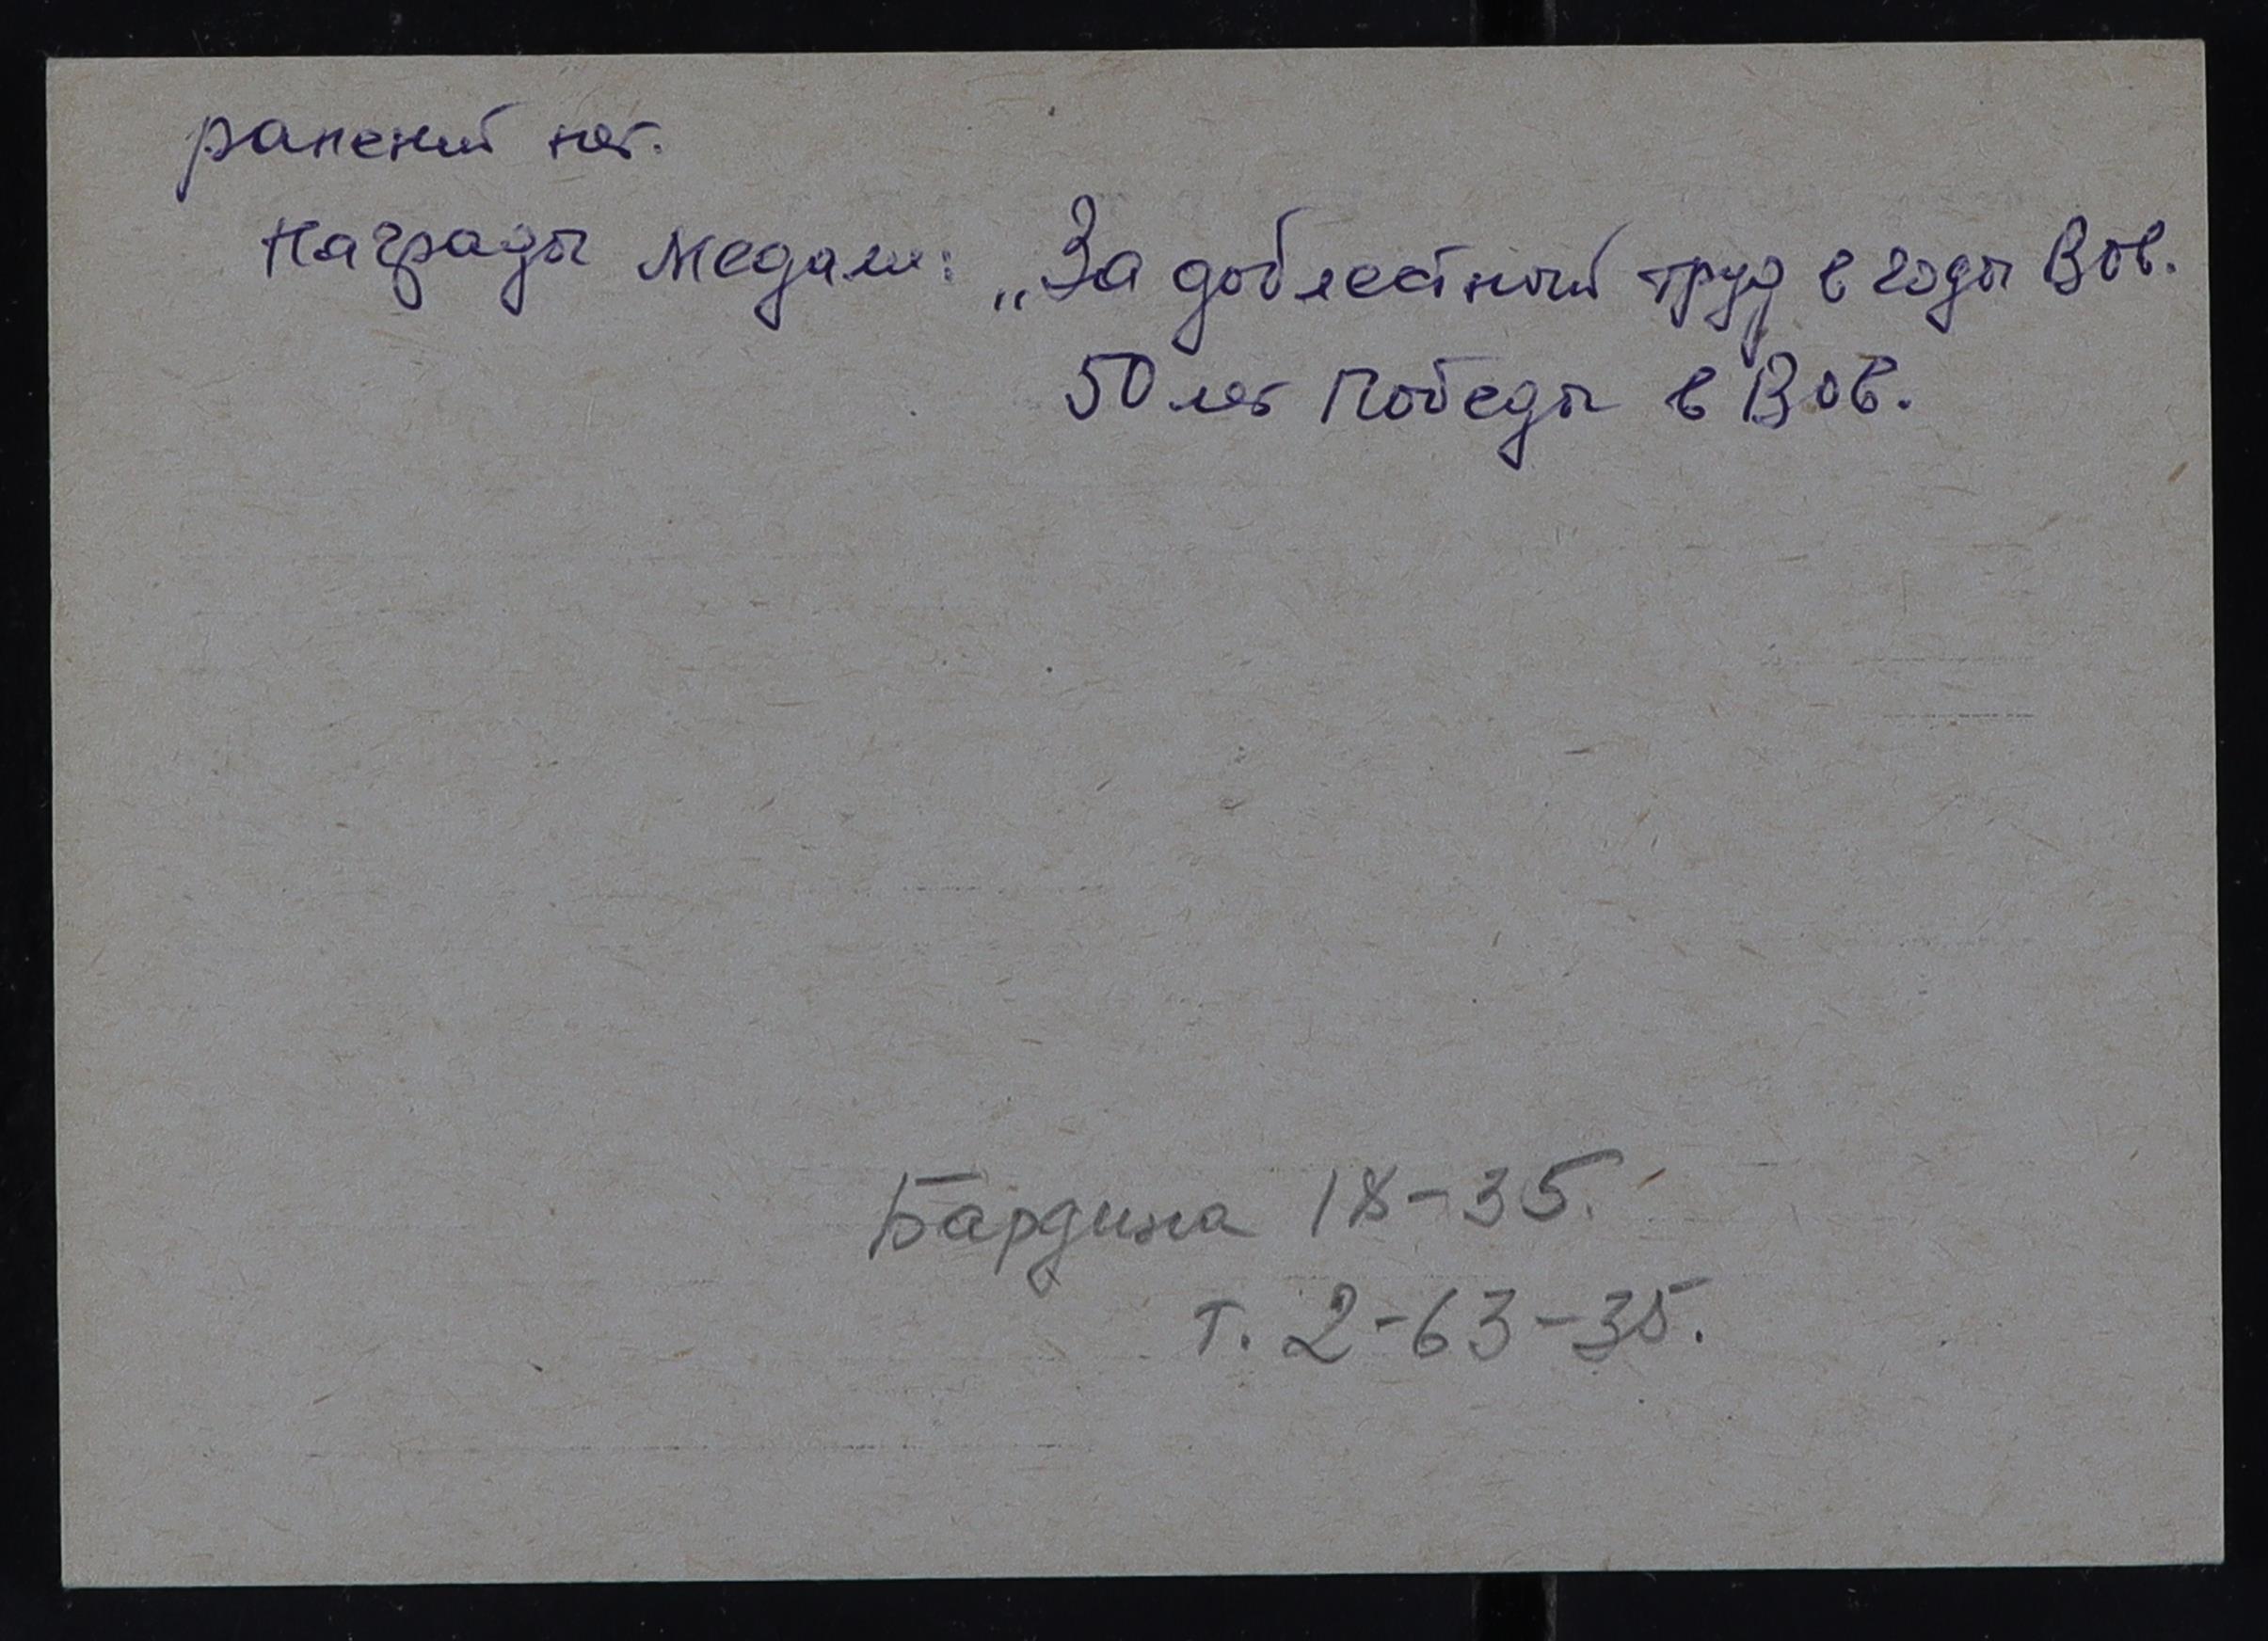 ранений нет.
Награды медали: „За доблестный труд в годы Вов.
50 лет Победы в Вов.
Бардина 18-35.
т. 2-63-35.